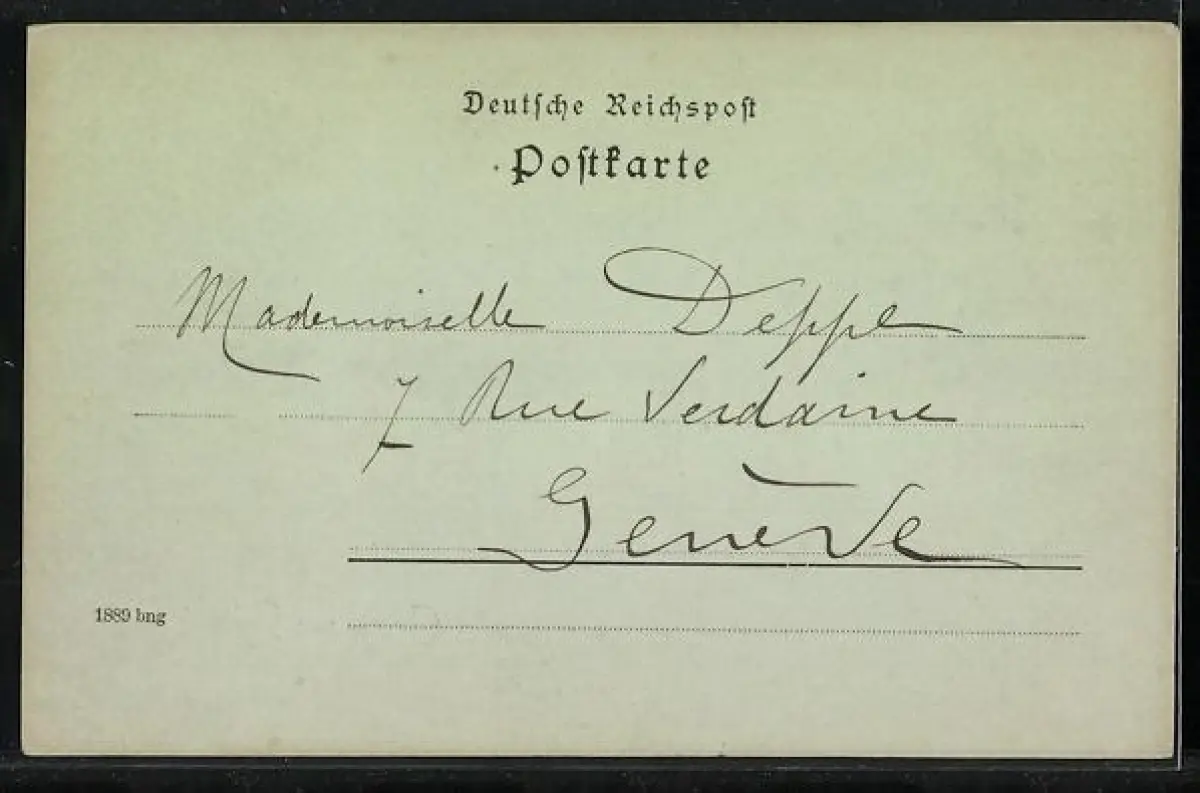 Deutsche Reichspost
Postkarte
Mademoiselle Deppe
7 Rue Verdaine
Genève
1889 bng